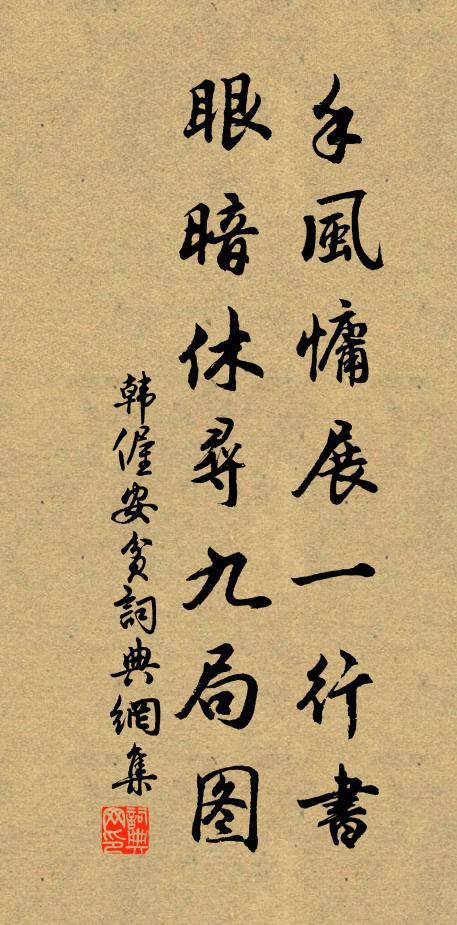 手風慵展一行書
眼暗休尋九局图
韩偓安贫詞典網集
詞典网印